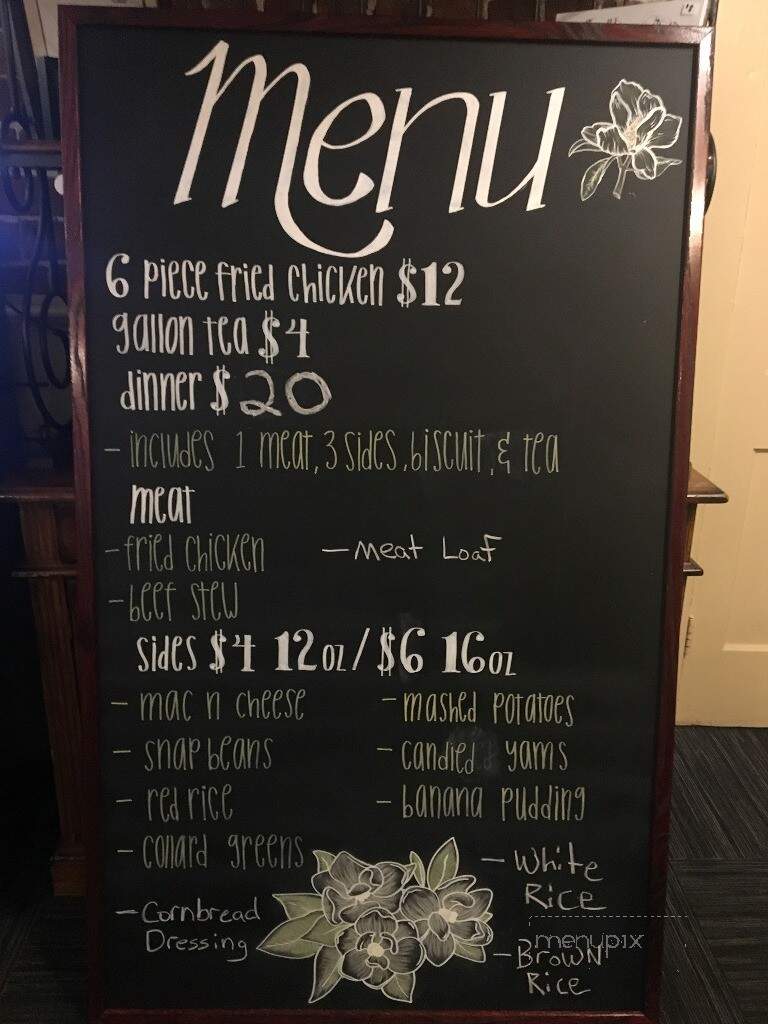 Menu
6 piece fried chicken $12
gallon tea $4
dinner $20
- includes 1 meat, 3 sides, biscuit, & tea
meat
- fried chicken - Meat Loaf
- beef stew
sides $4 12oz / $6 16oz
- mac n cheese - mashed potatoes
- snap beans - candied yams
- red rice - banana pudding
- collard greens - White Rice
- Cornbread Dressing - Brown Rice
menupix